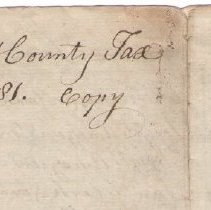 County Tax
81. Copy